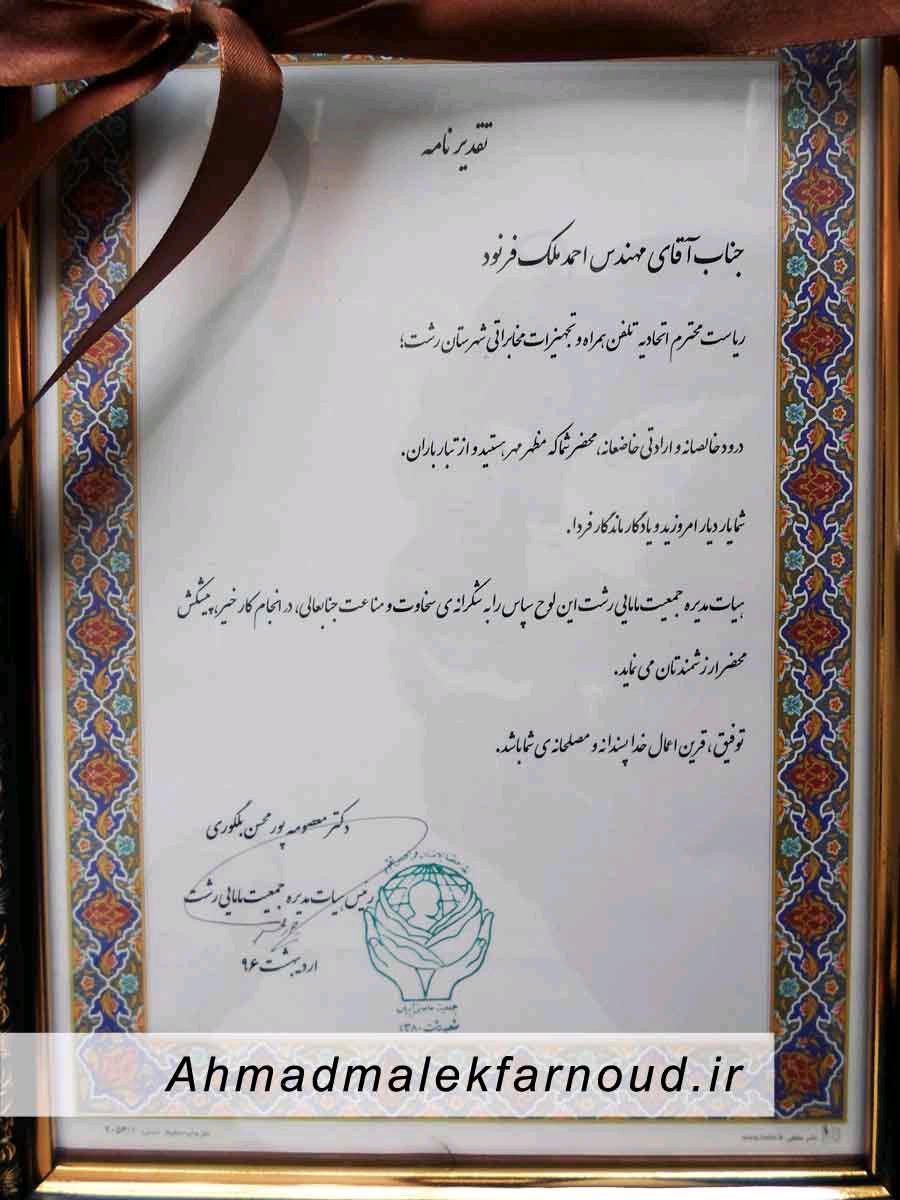 تقدیر نامه
جناب آقای مهندس احمد ملک فرنود
ریاست محترم اتحادیه تلفن همراه و تجهیزات مخابراتی شهرستان رشت؛
درود خالصانه و ارادتی خاضعانه، محضر شما که مظهر مهر هستید و از تبار باران.
شما یار دیار امروزید و یادگار ماندگار فردا.
هیات مدیره جمعیت مامایی رشت این لوح سپاس را به شکرانه ی سخاوت و مناعت جنابعالی، در انجام کار خیر، پیشکش
محضر ارزشمندتان می نماید.
توفیق، قرین اعمال خدا پسندانه و مصلحانه ی شما باشد.
دکتر معصومه پور محسن بلگوری
رئیس هیات مدیره جمعیت مامایی رشت
اردیبهشت ۹۶
جمعیت مامایی ایران
شعبه رشت ۱۳۸۰
Ahmadmalekfarnoud.ir